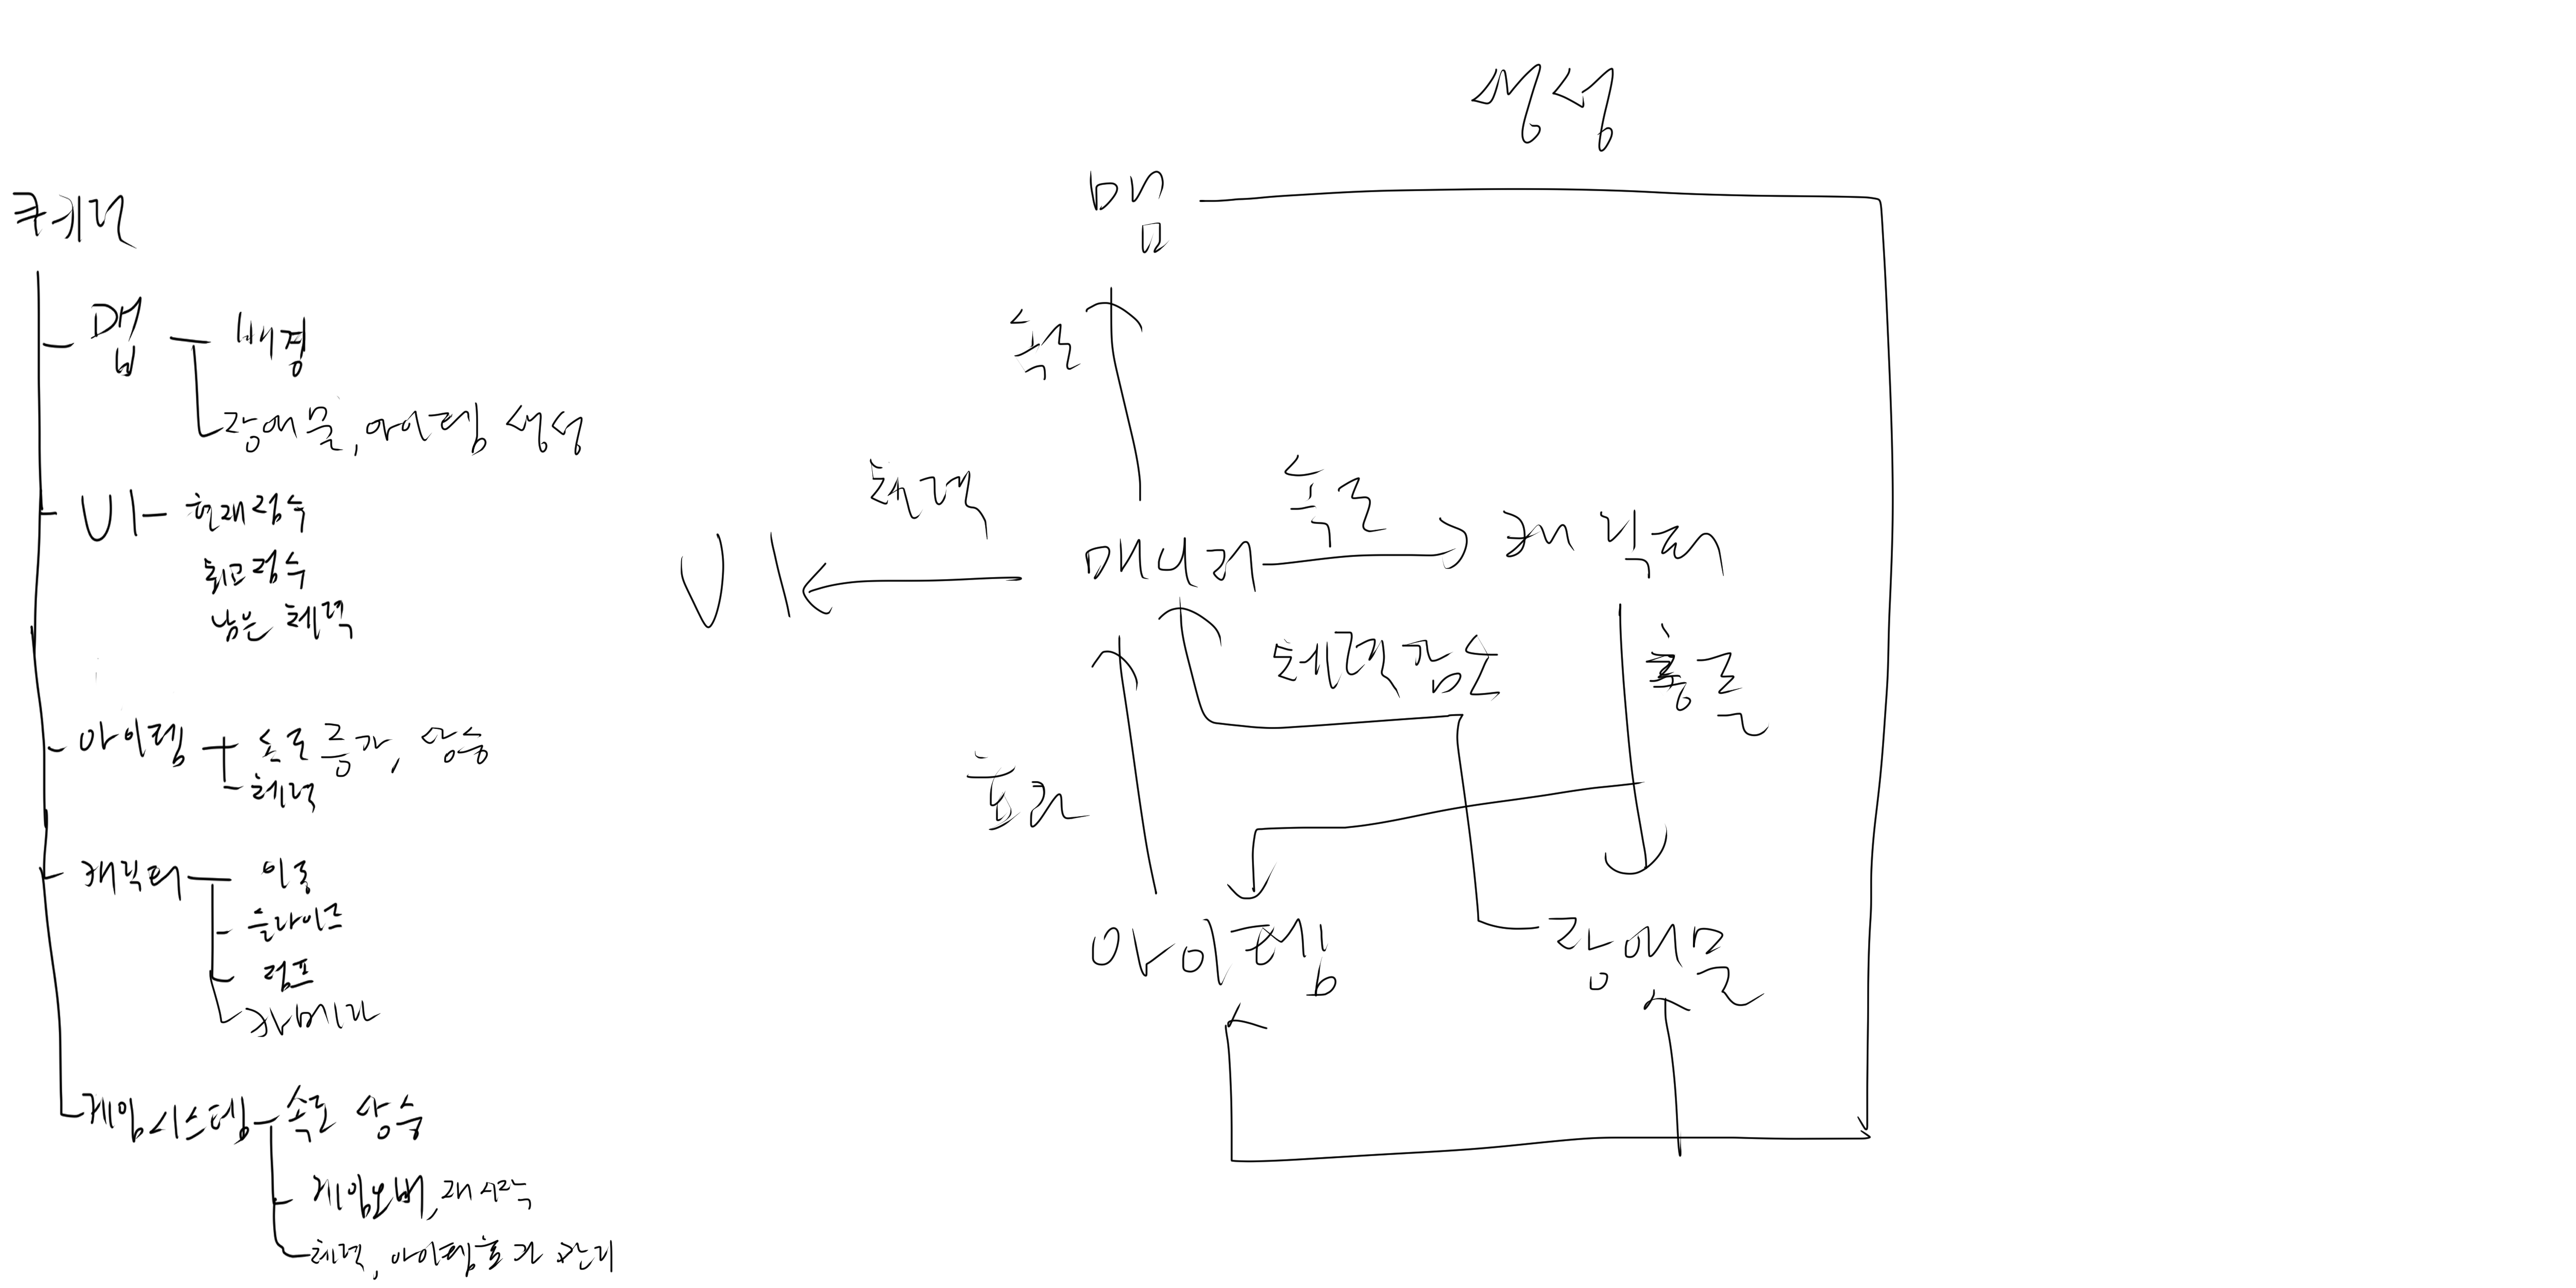 쿠키런
맵
배경
장애물, 아이템 생성
UI
현재점수
최고점수
남은 체력
아이템
속도 증가, 상승
체력
캐릭터
이동
슬라이드
점프
카메라
게임시스템
속도 상승
게임오버, 재시작
체력, 아이템효과 관리
생성
맵
속도
체력
속도
UI
매니저
캐릭터
체력감소
충돌
효과
아이템
장애물